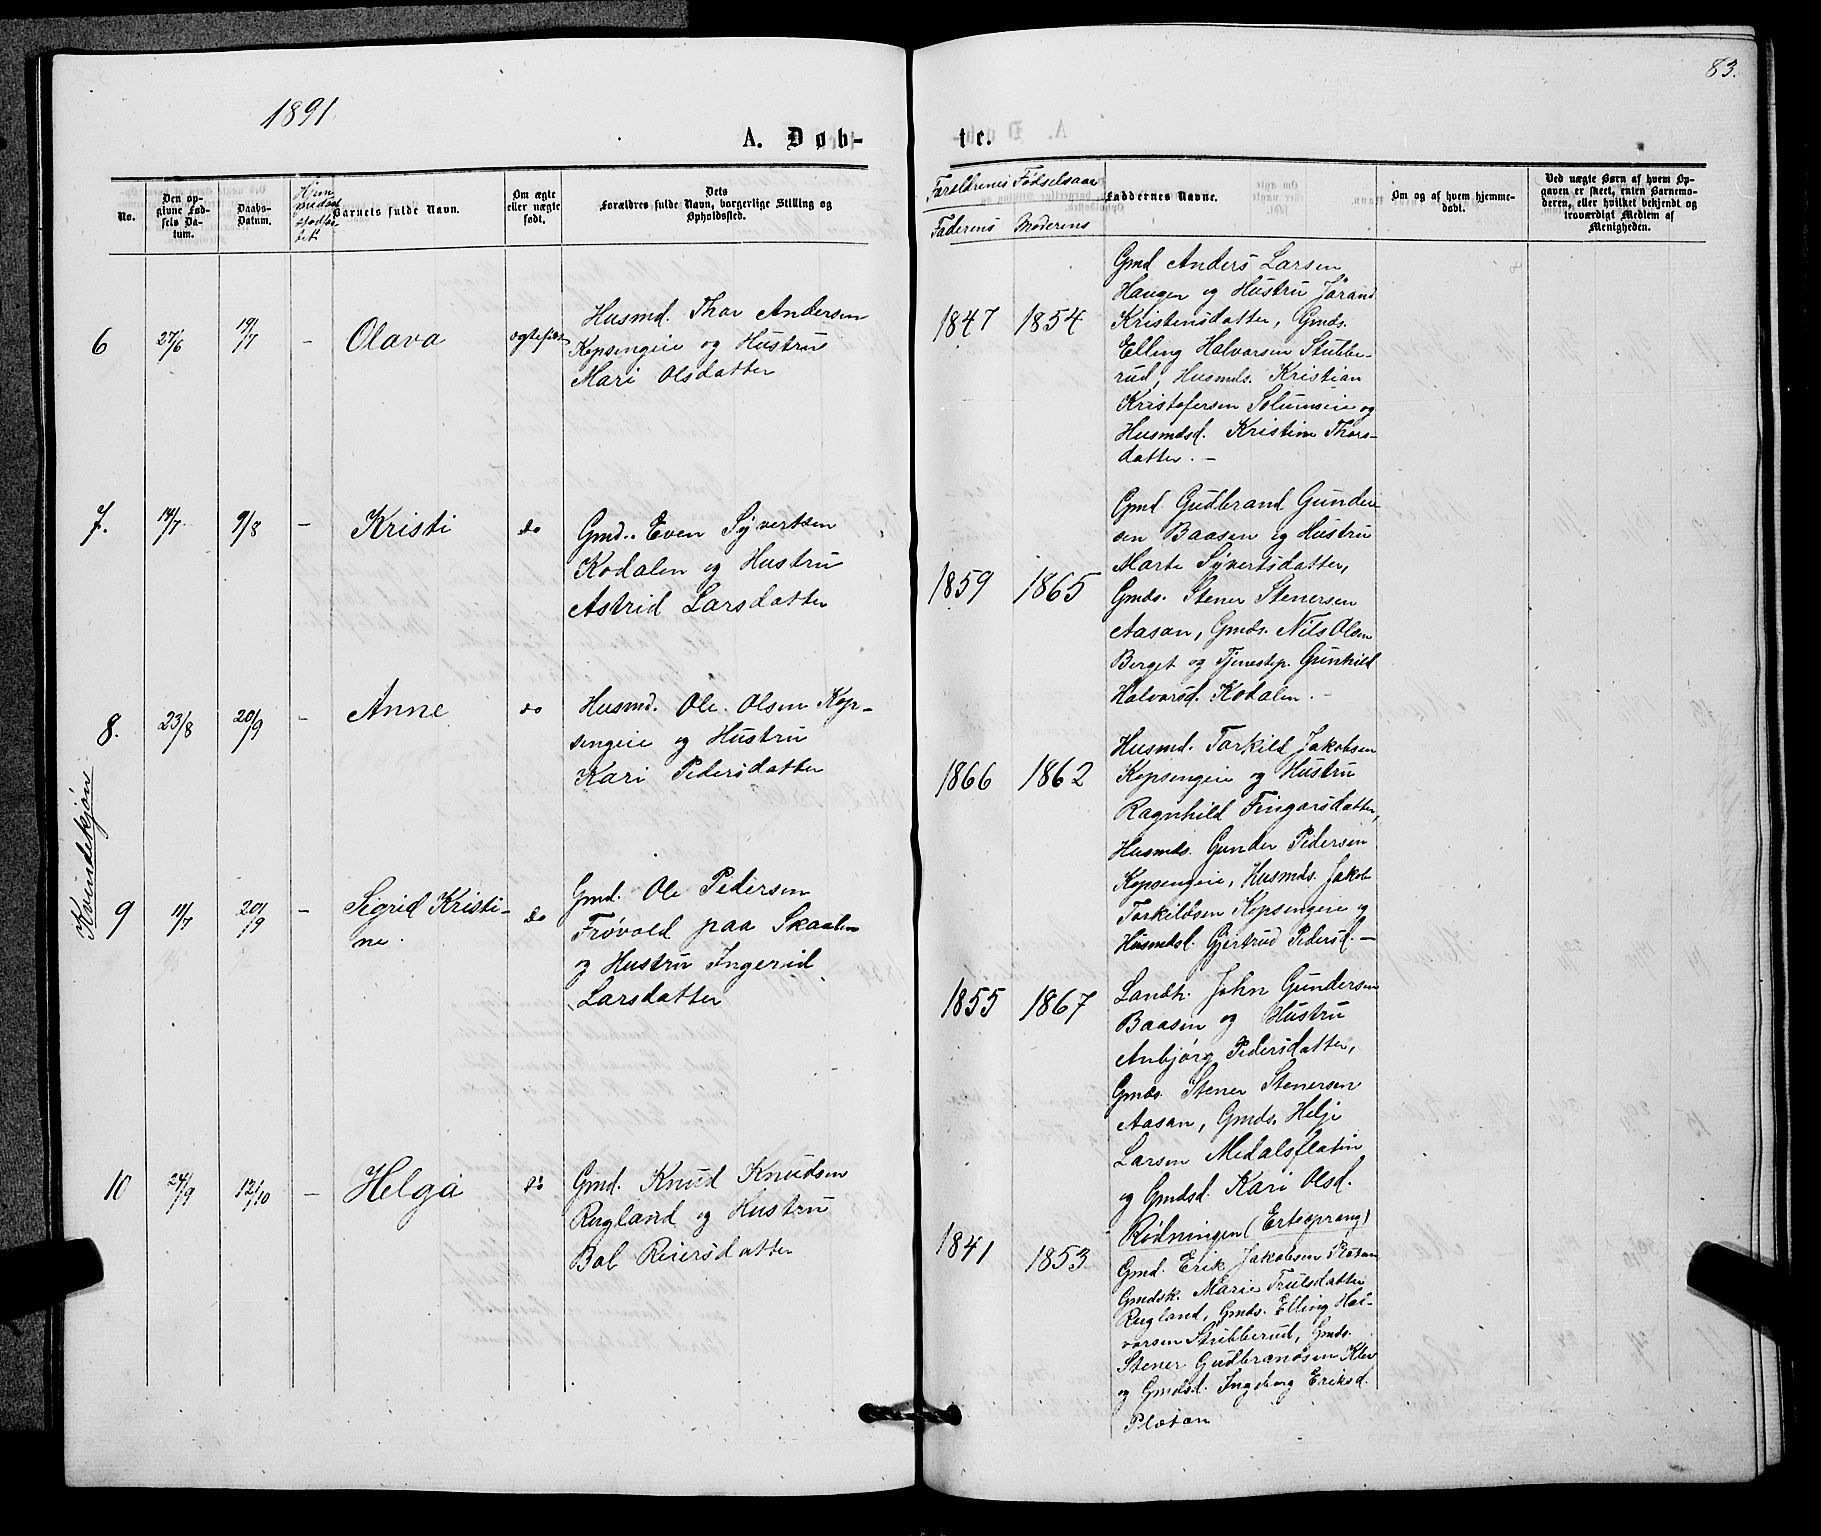 1891
83.
A. Døb-
te.
No.
Den op-
givne Fød-
sels Da-
tum.
Daabs-
Datum.
Barnets fulde Navn.
Om ægte
eller uægte
født.
Dets
Forældres fulde Navn, borgerlige Stilling og
Opholdssted.
Forældrenes Fødselsaar
Faderens
Moderens
Faddernes Navne.
Om og af hvem hjemme-
døbt.
Ved uægte Børn af hvem Op-
gaven er skeet, enten Barnemo-
deren, eller hvilket bekjendt og
troværdigt Medlem af
Menigheden.
Kvindekjøn
6
27/6
19/7
-
Olava
ægtefødt
Husmd. Thor Andersen
Kopsengeie og Hustru
Mari Olsdatter
1847
1854
Gmd Anders Larsen
Haugen og Hustru Jørand
Kristensdatter, Gmds.
Elling Halvorsen Stubbe-
rud, Husmds. Kristian
Kristofersen Solumseie og
Husmdsd. Kristine Thors-
datter. -
7.
14/7
9/8
-
Kristi
do
Gmd. Even Syvertsen
Kodalen og Hustru
Astrid Larsdatter
1859
1865
Gmd. Gudbrand Gunder-
sen Baasen og Hustru
Marte Syvertsdatter,
Gmds. Stener Stenersen
Aasan, Gmds. Nils Olsen
Berget og Tjenestep. Gunhild
Halvorsd. Kodalen. -
8.
23/8
20/9
-
Anne
do
Husmd. Ole Olsen Kop-
sengeie og Hustru
Kari Pedersdatter
1866
1862
Husmd. Torkild Jakobsen
Kopsengeie og Hustru
Ragnhild Fingarsdatter,
Husmds. Gunder Pedersen
Kopsengeie, Husmds. Jakob
Torkildsen Kopsengeie og
Husmdsd. Gjertrud Pedersd. -
9
11/7
20/9
-
Sigrid Kristi-
ne.
do
Gmd. Ole Pedersen
Frøvold paa Skaalen
og Hustru Ingerid
Larsdatter
1855
1867
Landh. John Gundersen
Baasen og Hustru
Anbjørg Pedersdatter,
Gmds. Stener Stenersen
Aasan, Gmds. Helje
Larsen Medalsflatin
og Gmdsd. Kari Olsd.
Rødningen (Ertesprang)
10
24/9
12/10
-
Helga
do
Gmd. Knud Knudsen
Rugland og Hustru
Bol Reiersdatter
1841
1853
Gmd. Erik Jakobsen Platan
Gmdsk. Marie Trulsdatter
Rugland, Gmds. Elling Hal-
vorsen Stubberud, Gmds.
Stener Gudbrandsen Klev
og Gmdsd. Ingeborg Eriksd.
Platan